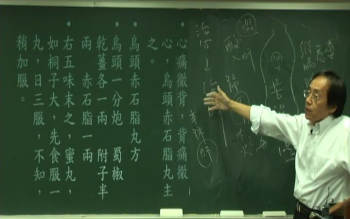 • 心痛徹背，背痛徹
心，烏頭赤石脂丸主
之。
• 烏頭赤石脂丸方
• 烏頭一分炮 蜀椒
乾薑各一兩 附子半
兩 赤石脂一兩
• 右五味末之，蜜丸，
如桐子大，先食服一
丸，日三服，不知，
稍加服。